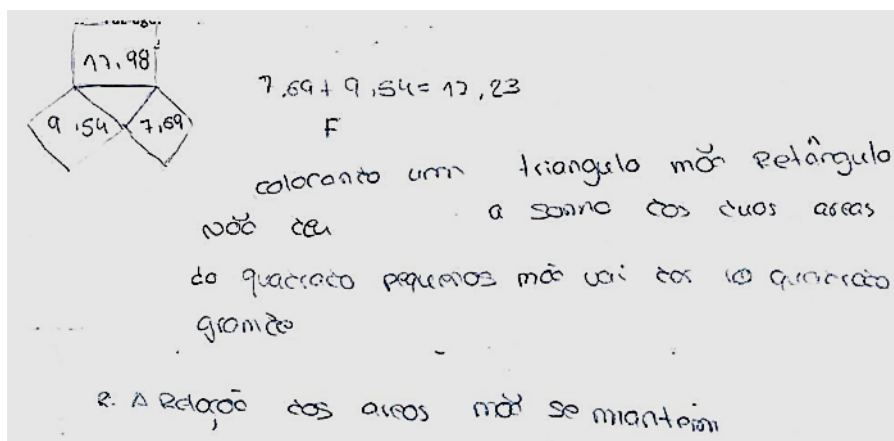 17,98
9,54 7,69
7,69 + 9,54 = 17,23
F
colocanto um triangulo não Retângulo
não deu a soma dos duas areas
do quadrado pequenos não vai dar quadrado
grande
R. A Relação das areas não se mantem